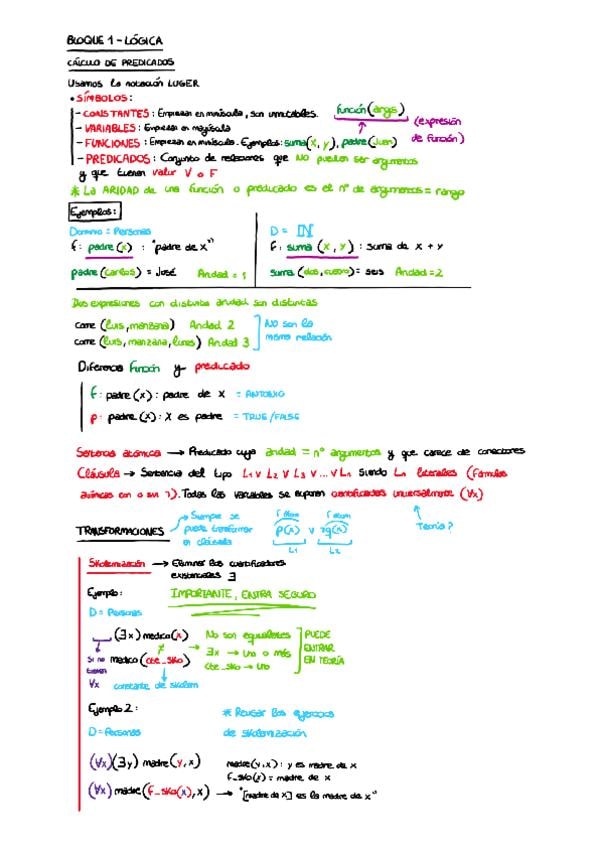 BLOQUE 1 - LÓGICA
CÁLCULO DE PREDICADOS
Usamos la notación LUGER
• SÍMBOLOS:
- CONSTANTES: Empiezan en minúscula, son inmutables. función(args)
- VARIABLES: Empiezan en mayúscula (expresión de función)
- FUNCIONES: Empiezan en minúscula. Ejemplos: suma(x, y), padre(Juan)
- PREDICADOS: Conjunto de relaciones que NO pueden ser argumentos
y que tienen valor V o F
* La ARIDAD de una función o predicado es el nº de argumentos = rango
Ejemplos:
Dominio = Personas
f: padre(x) : "padre de x"
padre(carlos) = José Aridad = 1
D = ℕ
f: suma (x, y) : suma de x + y
suma (dos, cuatro) = seis Aridad = 2
Dos expresiones con distinta aridad son distintas
corre (luis, manzana) Aridad 2
corre (luis, manzana, lunes) Aridad 3
NO son la
misma relación
Diferencia función y predicado
f: padre(x): padre de x = ANTONIO
p: padre(x): X es padre = TRUE/FALSE
Sentencia atómica → Predicado cuya aridad = nº argumentos y que carece de conectores
Cláusula → Sentencia del tipo L1 v L2 v L3 v ... v Ln siendo Ln literales (Fórmulas
atómicas con o sin ¬). Todas las variables se suponen cuantificadas universalmente (∀x)
Teoría?
TRANSFORMACIONES
→ Siempre se
puede transformar
en cláusula
f. atom f. atom
p(x) v ¬q(x)
L1 L2
Skolemización → Eliminar los cuantificadores
existenciales ∃
Ejemplo: IMPORTANTE, ENTRA SEGURO
D = Personas
(∃x) medico(x)
≠
medico(cte_sko)
Si no
tienen
∀x
constante de skolem
No son equivalentes
∃x → Uno o más
cte_sko → Uno
PUEDE
ENTRAR
EN TEORÍA
Ejemplo 2: * Revisar los ejercicios
de skolemización
D = Personas
(∀x)(∃y) madre(y, x)
madre(y, x): y es madre de x
f_sko(x) = madre de x
(∀x) madre(f_sko(x), x) → "[madre de x] es la madre de x"